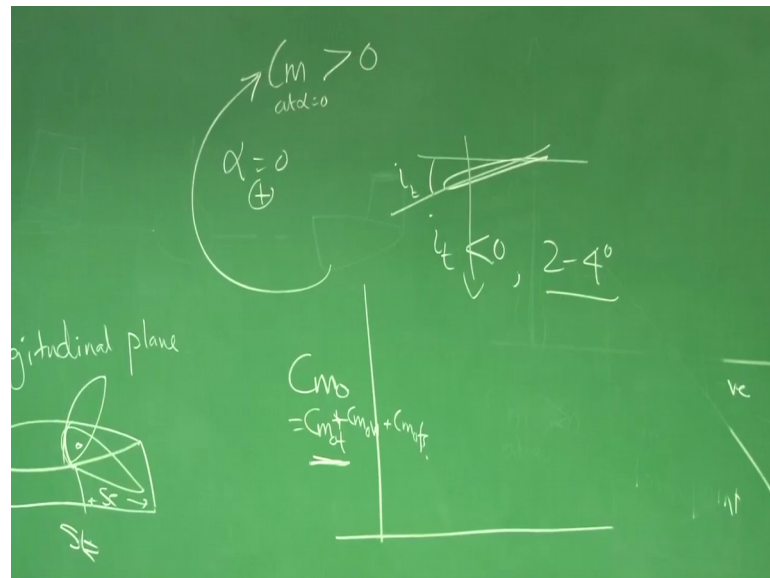 Cm > 0
at α=0
α = 0
⊕
i_t
i_t < 0, 2-4°
gitudinal plane
Cm₀
= Cm₀t + Cm₀w + Cm₀f.
Se
St
ve